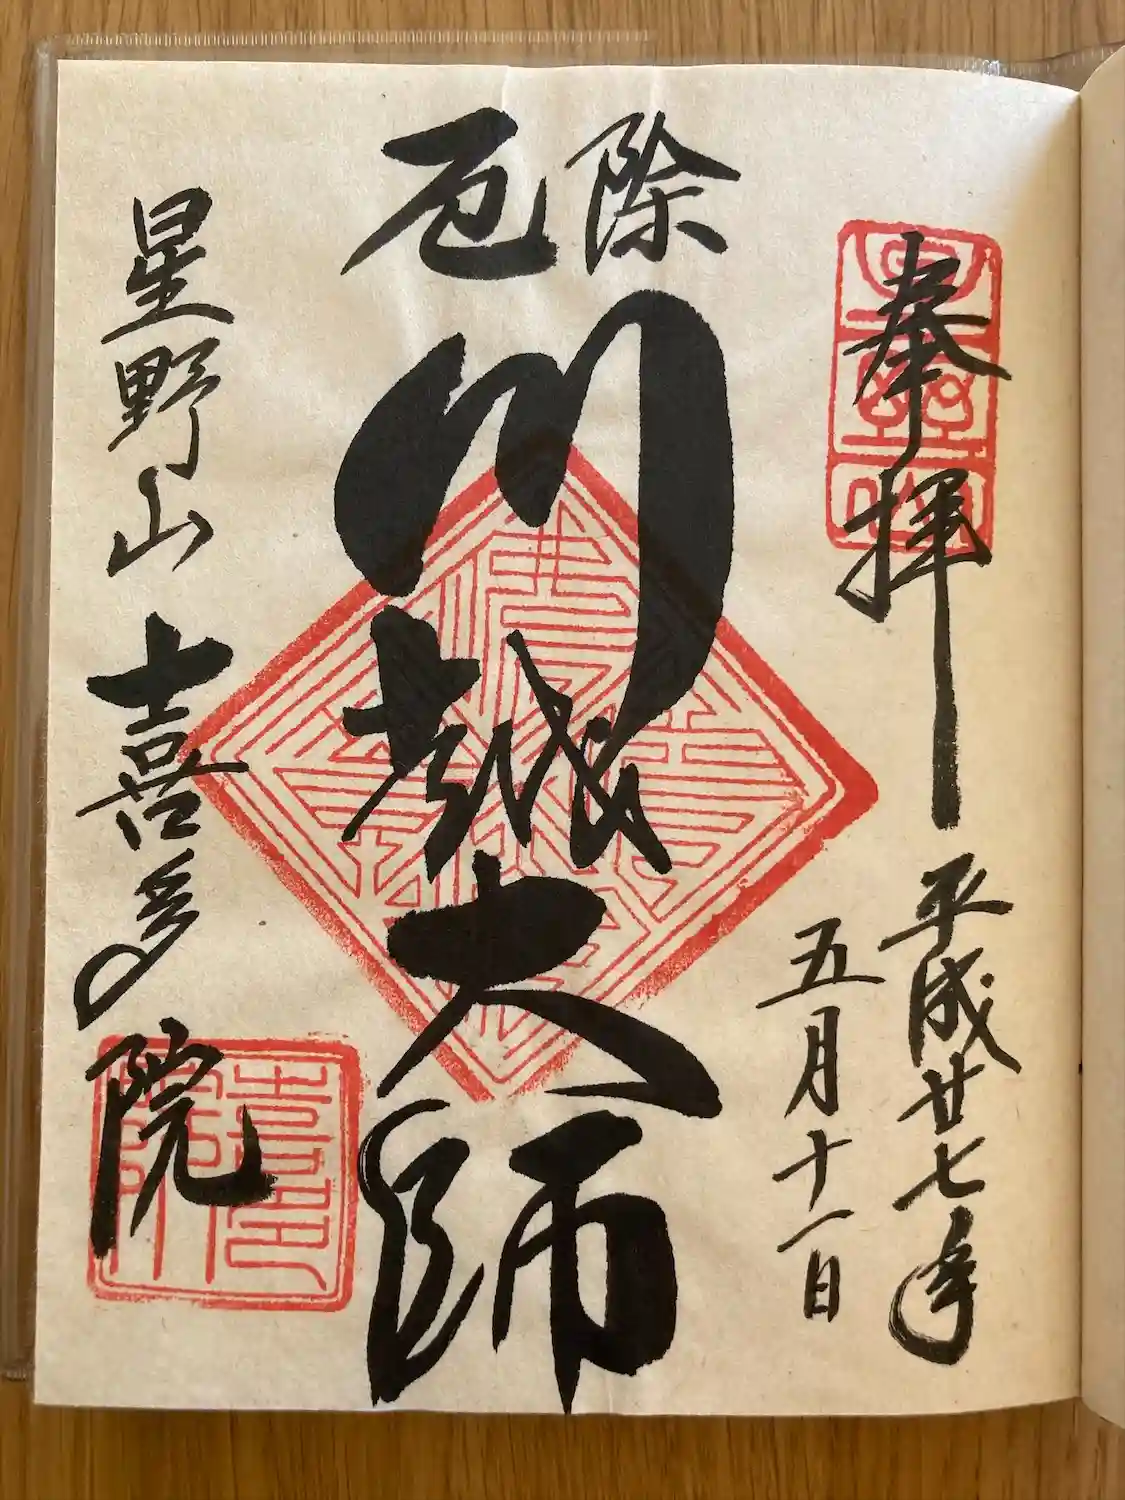 奉拝
平成廿七年
五月十一日
除厄
川越大師
星野山
喜多院